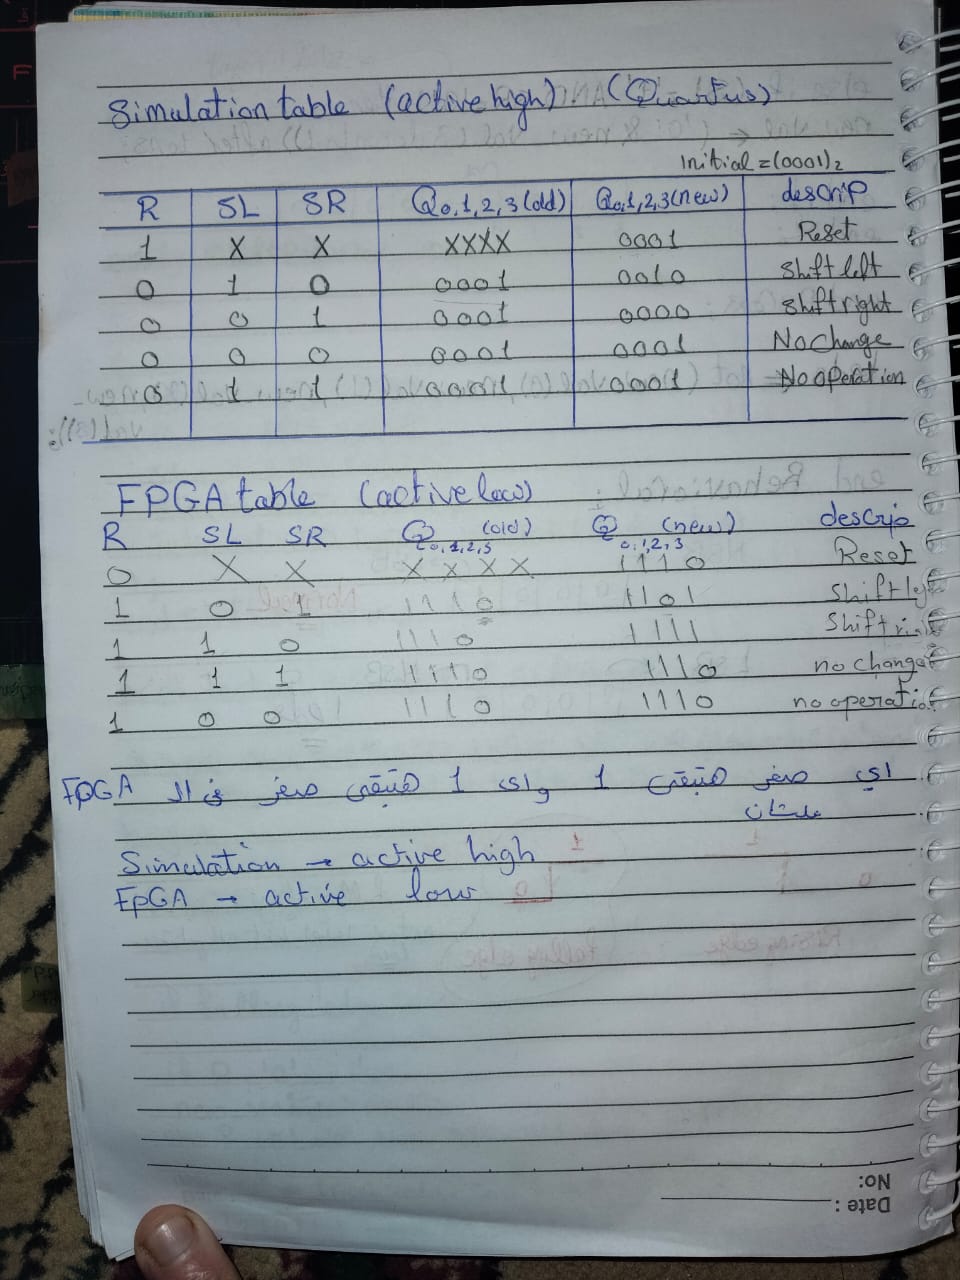 Simulation table (active high) (Quartus)
Initial = (0001)2
R SL SR Q0,1,2,3(old) Q0,1,2,3(new) descrip
1 X X XXXX 0001 Reset
0 1 0 0001 0010 Shift left
0 0 1 0001 0000 Shift right
0 0 0 0001 0001 No change
0 1 1 0001 0001 No operation
FPGA table (active low)
R SL SR Q0,1,2,3 (old) Q0,1,2,3 (new) descrip
0 X X X X X X 1110 Reset
1 0 1 1110 1101 Shift
1 1 0 1110 1111 Shift
1 1 1 1110 1110 no change
1 0 0 1110 1110 no operation
اي صفر هتبقى 1 واي 1 هتبقى صفر في ال FPGA
علشان
Simulation → active high
FpGA → active low
No:
Date :